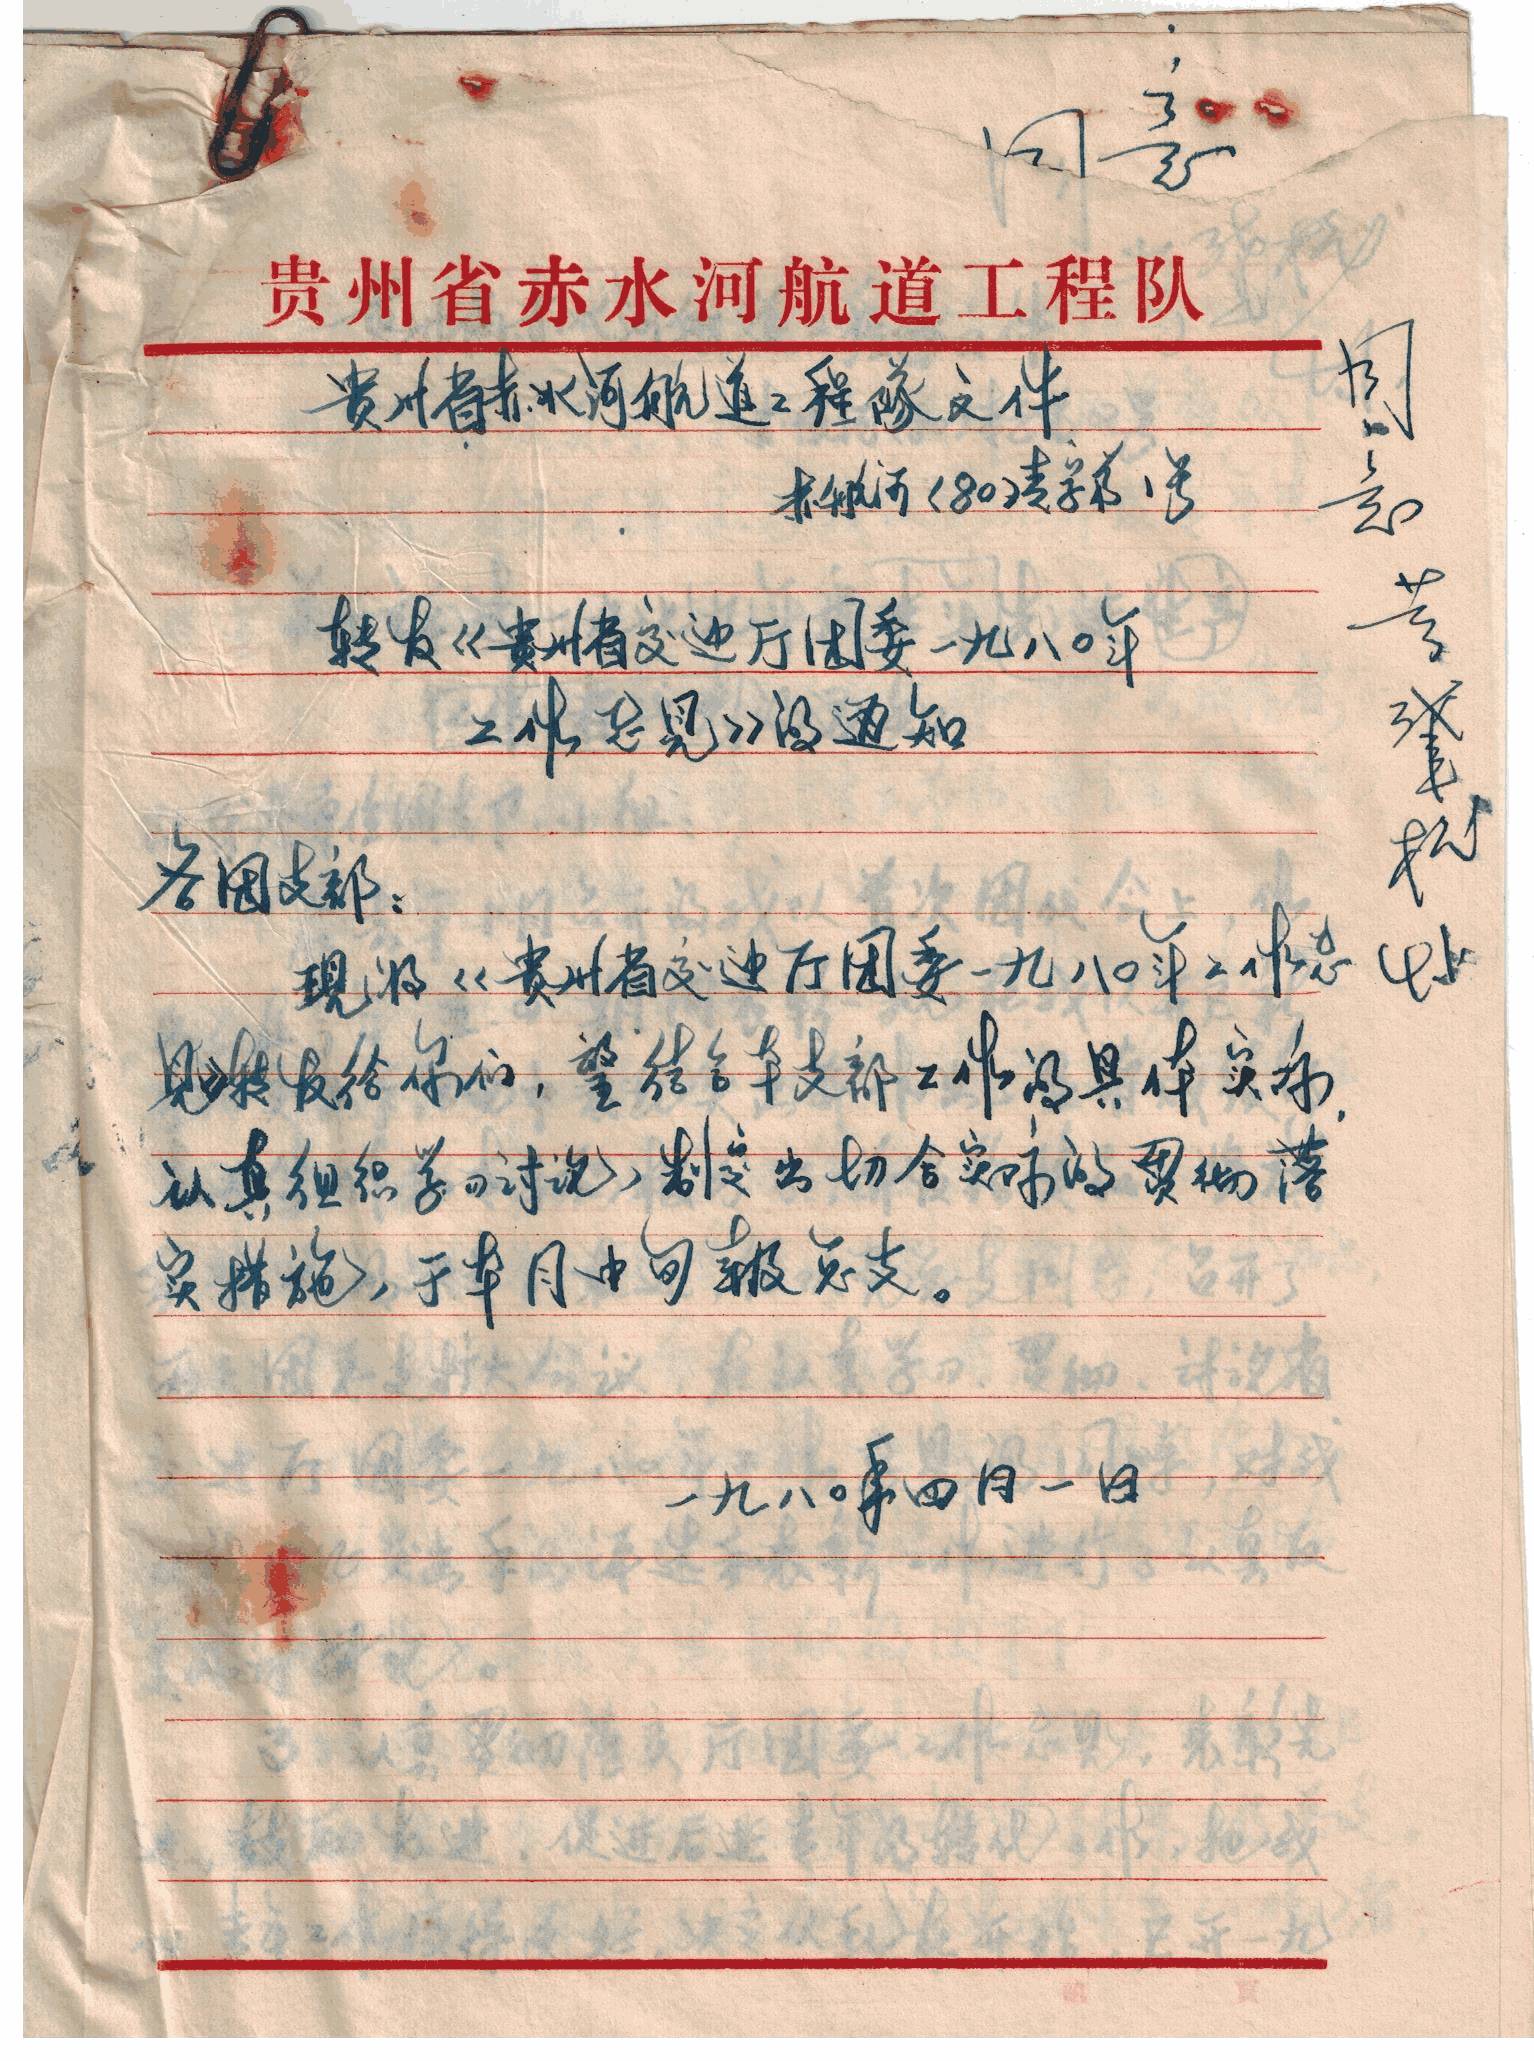 同意
贵州省赤水河航道工程队
貴州省赤水河航道工程隊文件
赤航河（80）青字第1号
转发《貴州省交通厅团委一九八〇年
工作意見》的通知
各团支部：
現将《貴州省交通厅团委一九八〇年工作意
見》转发给你们，望结合本支部工作的具体实际，
认真组织学习讨论，制定出切合实际的贯彻落
实措施，于本月中旬報总支。
一九八〇年四月一日
同意